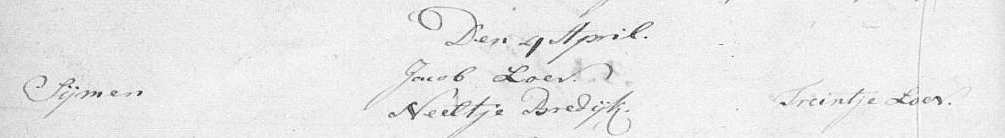 Den 4 April.
Jacob Loer.
Sijmen Neeltje Bredijk. Treintje Loer.